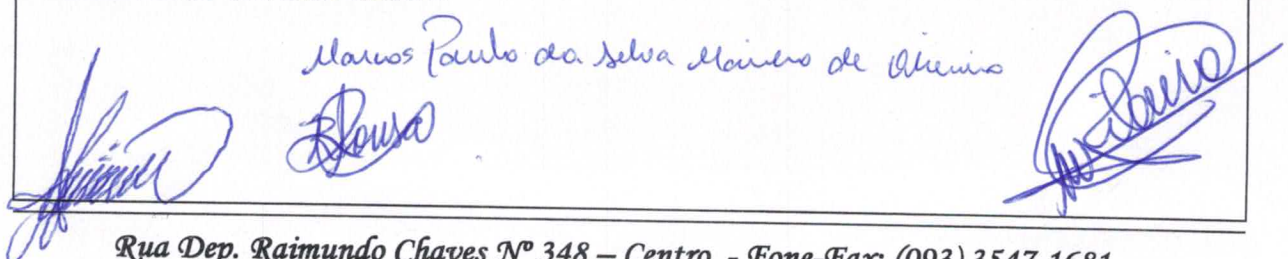 Marcos Paulo da Silva de Oliveira
BSousa
Rua Dep. Raimundo Chaves Nº 348 – Centro. - Fone-Fax: (093) 3547-1681